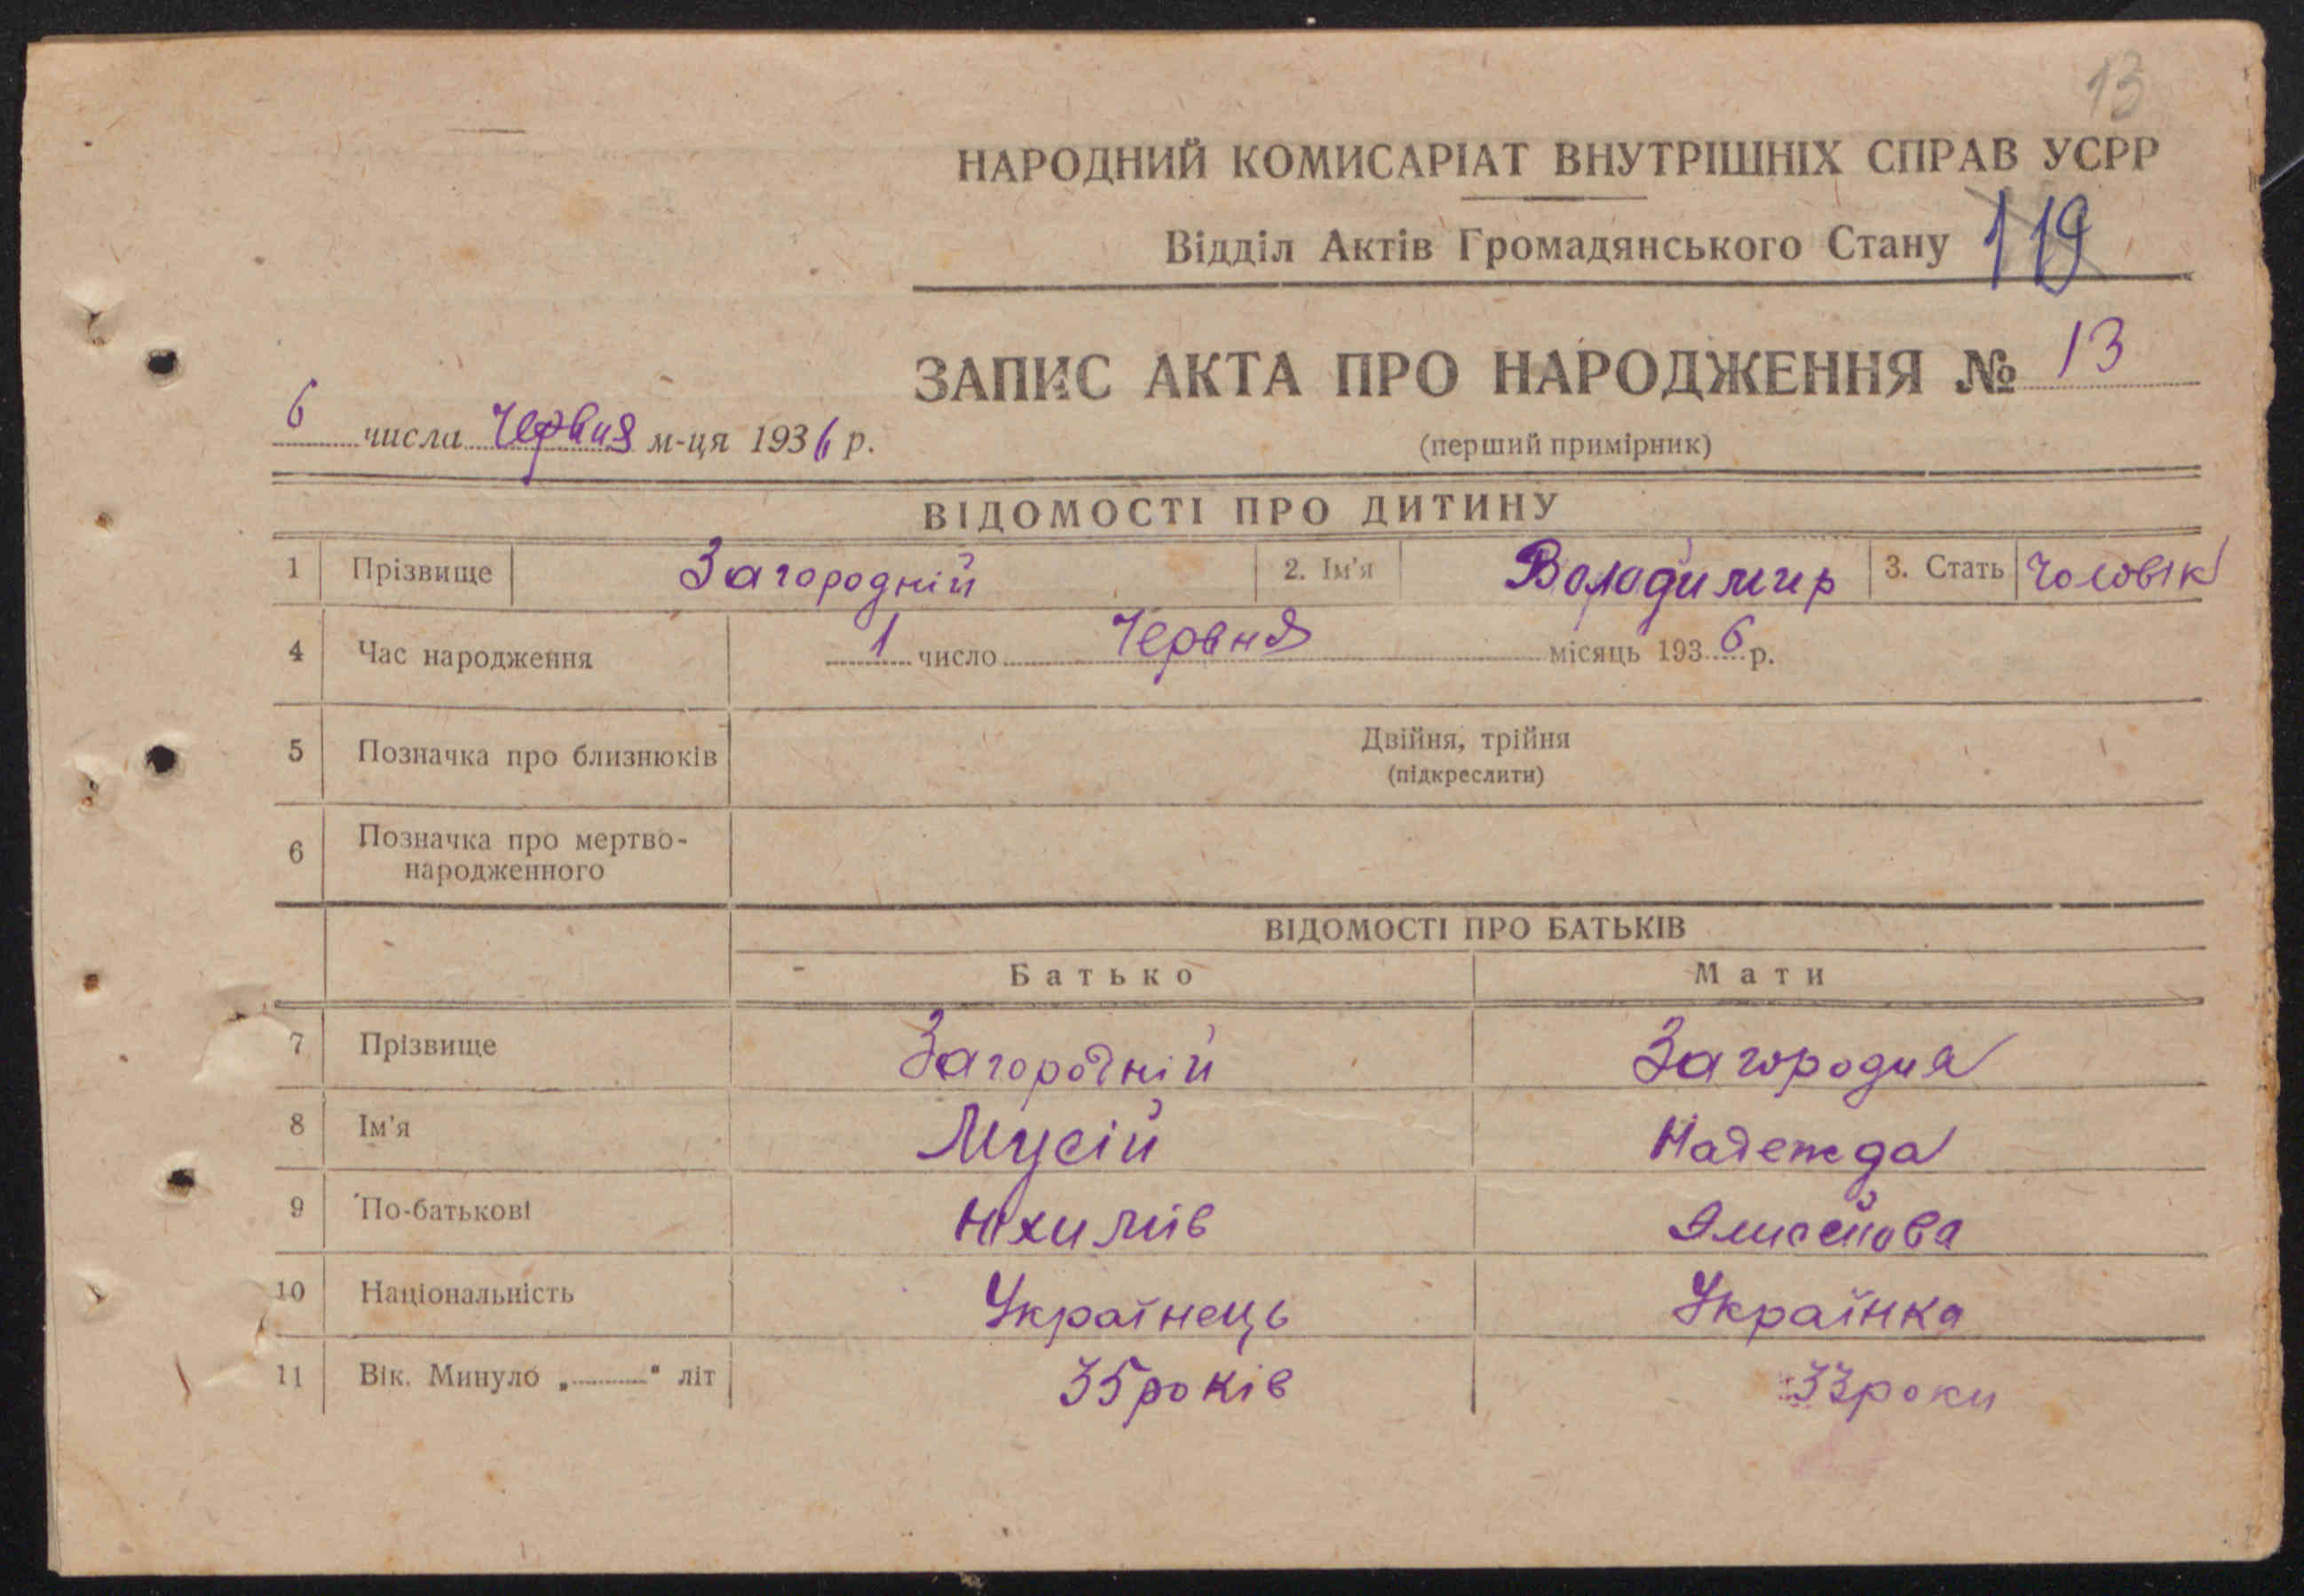 13
НАРОДНИЙ КОМИСАРІАТ ВНУТРІШНІХ СПРАВ УСРР
Відділ Актів Громадянського Стану 119
ЗАПИС АКТА ПРО НАРОДЖЕННЯ № 13
6 числа Червня м-ця 1936 р.
(перший примірник)
ВІДОМОСТІ ПРО ДИТИНУ
1 Прізвище Загородній 2. Ім'я Володимир 3. Стать Чоловік
4 Час народження 1 число Червня місяць 1936 р.
5 Позначка про близнюків Двійня, трійня
(підкреслити)
6 Позначка про мертво-
народженного
ВІДОМОСТІ ПРО БАТЬКІВ
Батько Мати
7 Прізвище Загородній Загородня
8 Ім'я Мусій Надежда
9 По-батькові Юхимів
10 Національність Українець Українка
11 Вік. Минуло „ “ літ 35 років 33 роки